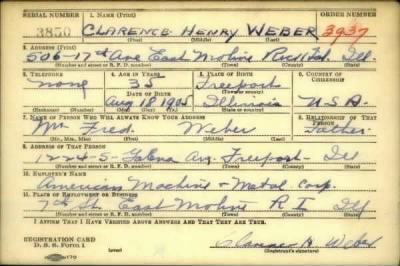 SERIAL NUMBER 1. NAME (Print) ORDER NUMBER
3850 CLARENCE HENRY WEBER 3937
(First) (Middle) (Last)
2. ADDRESS (Print)
506-17th Ave East Moline Rock Isl. Ill.
(Number and street or R. F. D. number) (Town) (County) (State)
3. TELEPHONE 4. AGE IN YEARS 5. PLACE OF BIRTH 6. COUNTRY OF CITIZENSHIP
none 35 Freeport
DATE OF BIRTH
Aug 18 1905 Illinois U.S.A.
(Mo.) (Day) (Yr.) (State or country)
7. NAME OF PERSON WHO WILL ALWAYS KNOW YOUR ADDRESS 8. RELATIONSHIP OF THAT PERSON
Mr. Fred. Weber Father
(Mr., Mrs., Miss) (First) (Middle) (Last)
9. ADDRESS OF THAT PERSON
1224-S-Galena Av. Freeport Ill
(Number and street or R. F. D. number) (Town) (County) (State)
10. EMPLOYER'S NAME
American Machine & Metal Corp.
11. PLACE OF EMPLOYMENT OR BUSINESS
7th St. East Moline R I Ill
(Number and street or R. F. D. number) (Town) (County) (State)
I AFFIRM THAT I HAVE VERIFIED ABOVE ANSWERS AND THAT THEY ARE TRUE.
REGISTRATION CARD
D. S. S. Form 1 Clarence H. Weber
(Registrant's signature)